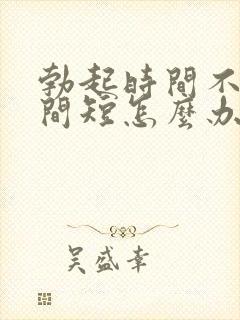 勃起時間不
間短怎麼办
吳盛幸